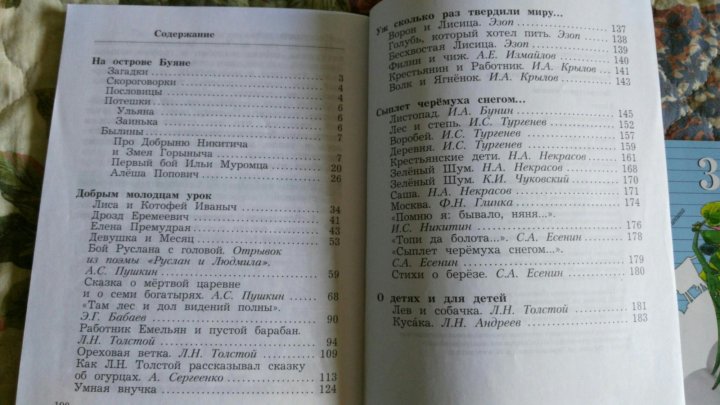 Содержание
На острове Буяне
Загадки 3
Скороговорки 4
Пословицы 4
Потешки 6
Ульяна 6
Заинька 6
Былины 7
Про Добрыню Никитича
и Змея Горыныча 7
Первый бой Ильи Муромца 20
Алёша Попович 26
Добрым молодцам урок
Лиса и Котофей Иваныч 34
Дрозд Еремеевич 41
Елена Премудрая 43
Девушка и Месяц 53
Бой Руслана с головой. Отрывок
из поэмы «Руслан и Людмила».
А.С. Пушкин 59
Сказка о мёртвой царевне
и о семи богатырях. А.С. Пушкин 68
«Там лес и дол видений полны».
Э.Г. Бабаев 90
Работник Емельян и пустой барабан.
Л.Н. Толстой 94
Ореховая ветка. Л.Н. Толстой 109
Как Л.Н. Толстой рассказывал сказку
об огурцах. А. Сергеенко 113
Умная внучка 124
Уж сколько раз твердили миру...
Ворон и Лисица. Эзоп 137
Голубь, который хотел пить. Эзоп 138
Бесхвостая Лисица. Эзоп 139
Филин и чиж. А.Е. Измайлов 140
Крестьянин и Работник. И.А. Крылов 141
Волк и Ягнёнок. И.А. Крылов 143
Сыплет черёмуха снегом...
Листопад. И.А. Бунин 145
Лес и степь. И.С. Тургенев 152
Воробей. И.С. Тургенев 157
Деревня. И.С. Тургенев 159
Крестьянские дети. Н.А. Некрасов 161
Зелёный Шум. Н.А. Некрасов 168
Зелёный Шум. К.И. Чуковский 170
Саша. Н.А. Некрасов 171
Москва. Ф.Н. Глинка 174
«Помню я: бывало, няня...».
И.С. Никитин 176
«Топи да болота...». С.А. Есенин 178
«Сыплет черёмуха снегом...».
С.А. Есенин 179
Стихи о берёзе. С.А. Есенин 180
О детях и для детей
Лев и собачка. Л.Н. Толстой 181
Куса́ка. Л.Н. Андреев 183
3